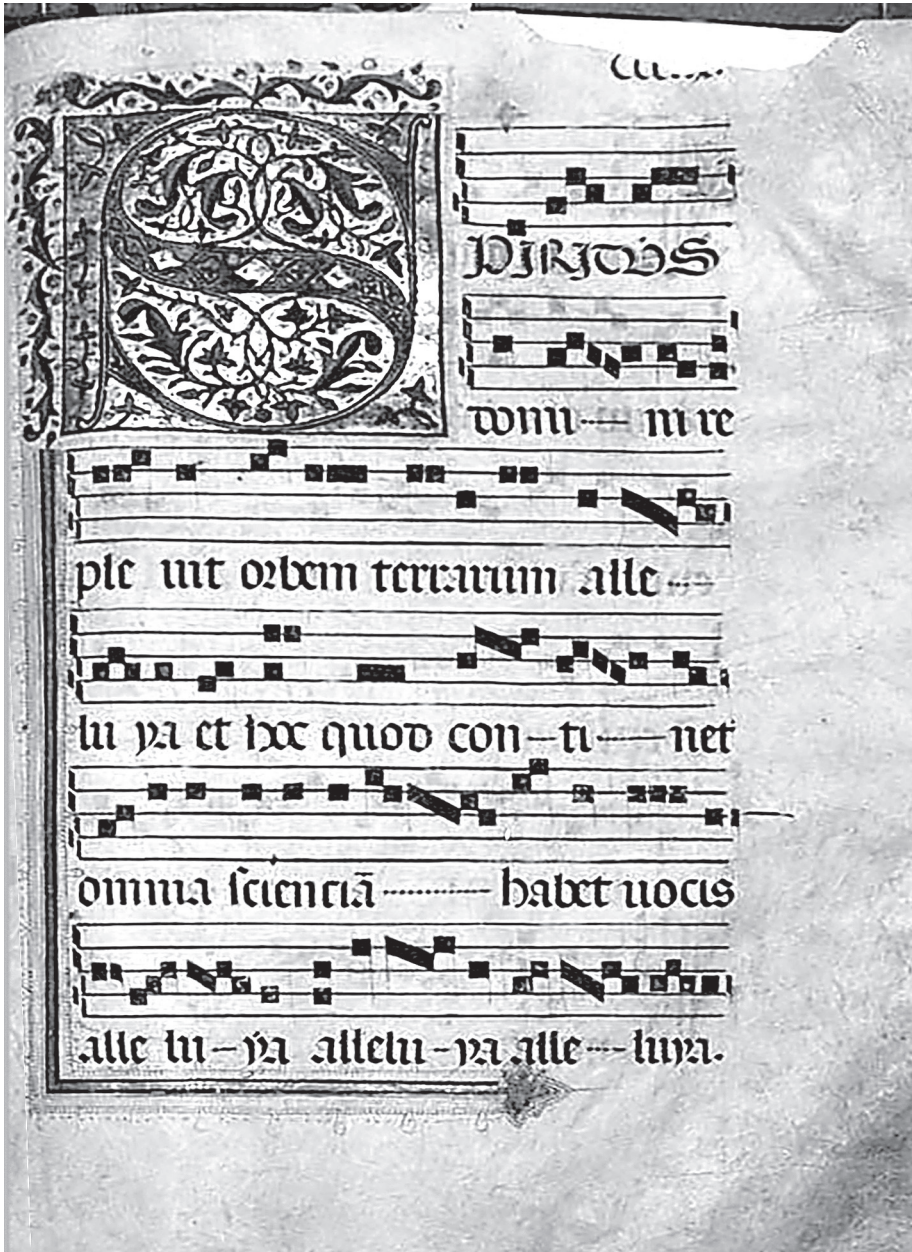 SPIRITUS
domi---ni re
ple uit orbem terrarum alle---
lu ya et hoc quod con--ti---net
omnia scienciā--------- habet uocis
alle lu--ya allelu--ya alle---luya.